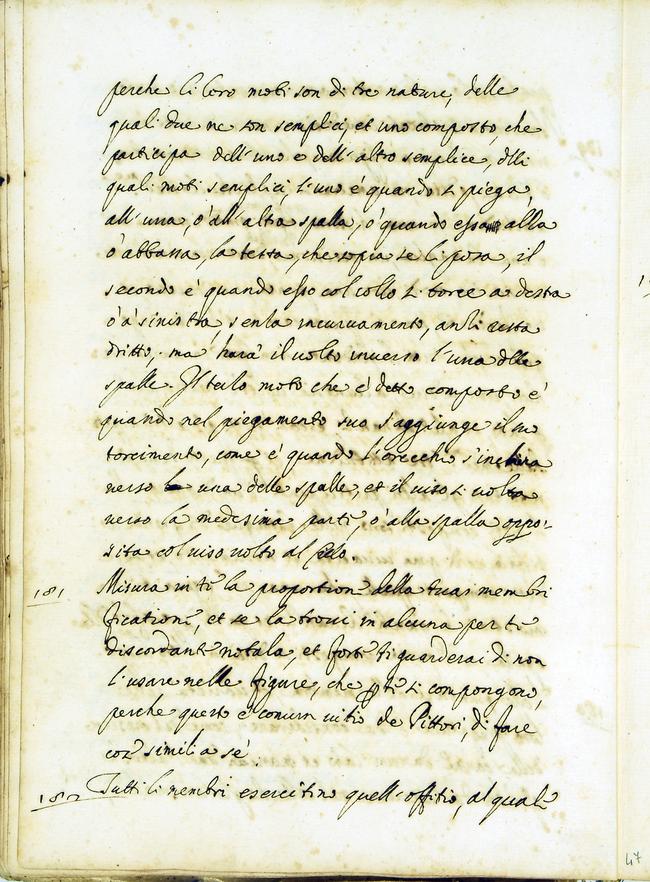 perche li loro moti son di tre nature, delle
quali due ne son semplici, et uno composto, che
participa dell'uno e dell'altro semplice, dlli
quali moti semplici, l'uno è quando si piega,
all'una, ò all'altra spalla, ò quando esso alza
ò abbassa, la testa, che sopra se li posa, il
secondo è quando esso col collo si torce a destra
ò à sinistra, senza incuruamento, anzi resta
dritto, ma harà il uolto inuerso l'una dlle
spalle. Il terzo moto che è detto composto è
quando nel piegamento suo s'aggiunge il suo
torcimento, come è quando l'orecchia s'inchina
uerso una delle spalle, et il uiso si uolta
uerso la medesima parte, ò alla spalla oppo-
sita col uiso uolto al cielo.
181 Misura in tè la proportione della tua membri
ficatione, et se la troui in alcuna per te
discordante notala, et forte ti guarderai di non
l'usare nelle figure, che p te si compongono,
perche questo è comun uitio de Pittori, di fare
cose simili a sè.
182 Tutti li membri esercitino quell'offitio, al quale
47